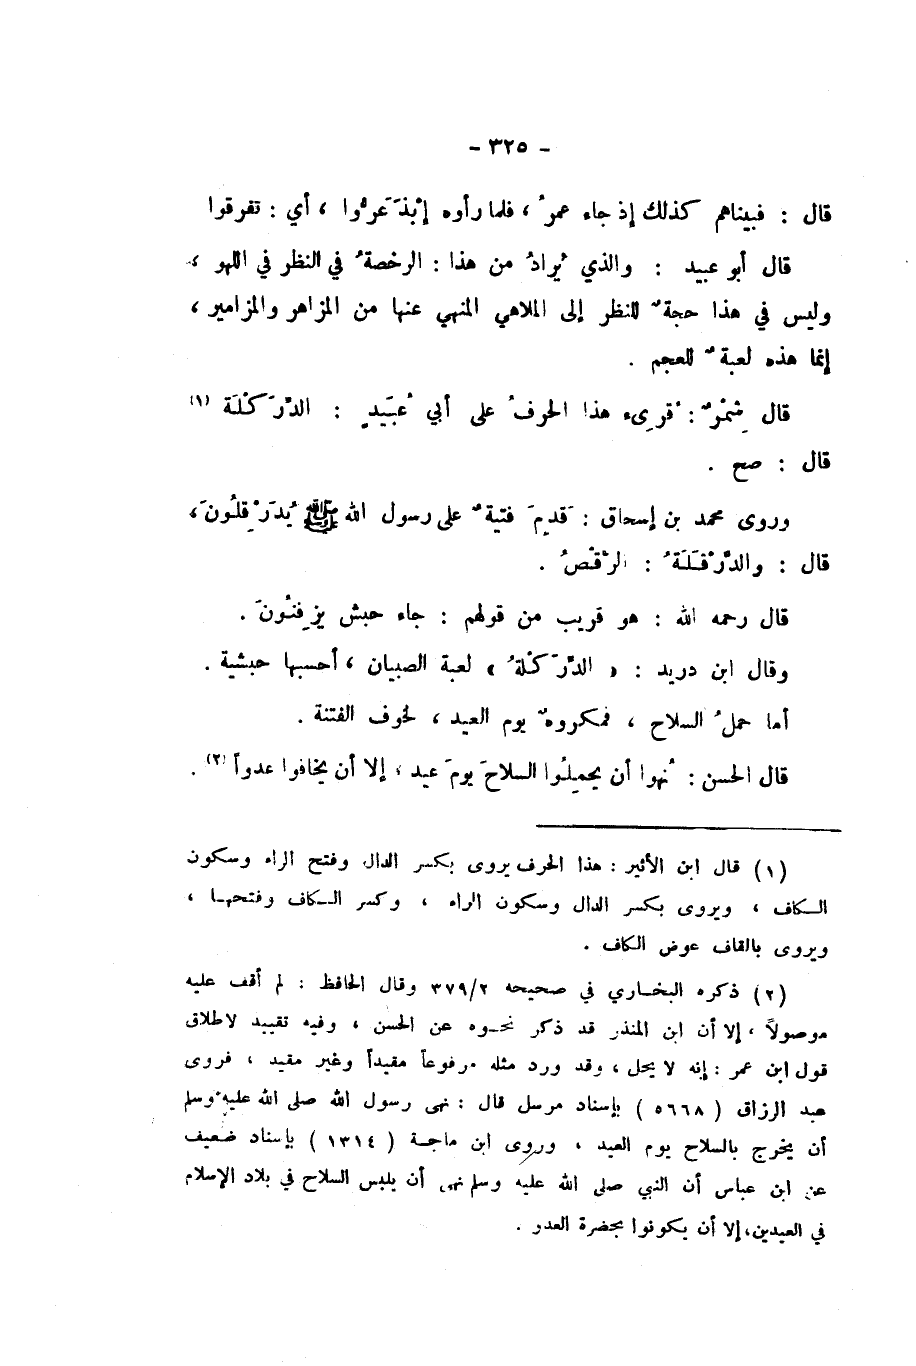 - ٣٢٥ -
قال : فبيناهم كذلك إذ جاء عمرُ ، فلما رأوه إبْذَعَرُّوا ، أي : تفرقوا
قال أبو عبيد : والذي يُرادُ من هذا : الرخصةُ في النظر في اللهو ،
وليس في هذا حجةٌ للنظر إلى الملاهي المنهي عنها من المزاهر والمزامير ،
إنما هذه لعبةٌ للعجم .
قال شِمْرٌ : قُرِىء هذا الحرفُ على أبي عُبَيدٍ : الدِّرَكْلَة (١)
قال : صح .
وروى محمد بن إسحاق : قَدِمَ فتيةٌ على رسول الله ﷺ يُدَرْقِلُونَ ،
قال : والدَّرْقَلَةُ : الرَّقْصُ .
قال رحمه الله : هو قريب من قولهم : جاء حبش يزفِنُونَ .
وقال ابن دريد : « الدِّرَكْلةُ » لعبة الصبيان ، أحسبها حبشية .
أما حملُ السلاح ، فمكروهٌ يوم العيد ، لخوف الفتنة .
قال الحسن : نُهوا أن يحمِلُوا السلاحَ يومَ عيد ، إلا أن يخافوا عدواً (٢) .
(١) قال ابن الأثير : هذا الحرف يروى بكسر الدال وفتح الراء وسكون
الكاف ، ويروى بكسر الدال وسكون الراء ، وكسر الكاف وفتحها ،
ويروى بالقاف عوض الكاف .
(٢) ذكره البخاري في صحيحه ٣٧٩/٢ وقال الحافظ : لم أقف عليه
موصولاً ، إلا أن ابن المنذر قد ذكر نحوه عن الحسن ، وفيه تقييد لاطلاق
قول ابن عمر : إنه لا يحل ، وقد ورد مثله مرفوعاً مقيداً وغير مقيد ، فروى
عبد الرزاق ( ٥٦٦٨ ) بإسناد مرسل قال : نهى رسول الله صلى الله عليه وسلم
أن يخرج بالسلاح يوم العيد ، وروى ابن ماجة ( ١٣١٤ ) بإسناد ضعيف
عن ابن عباس أن النبي صلى الله عليه وسلم نهى أن يلبس السلاح في بلاد الإسلام
في العيدين، إلا أن يكونوا بحضرة العدو .